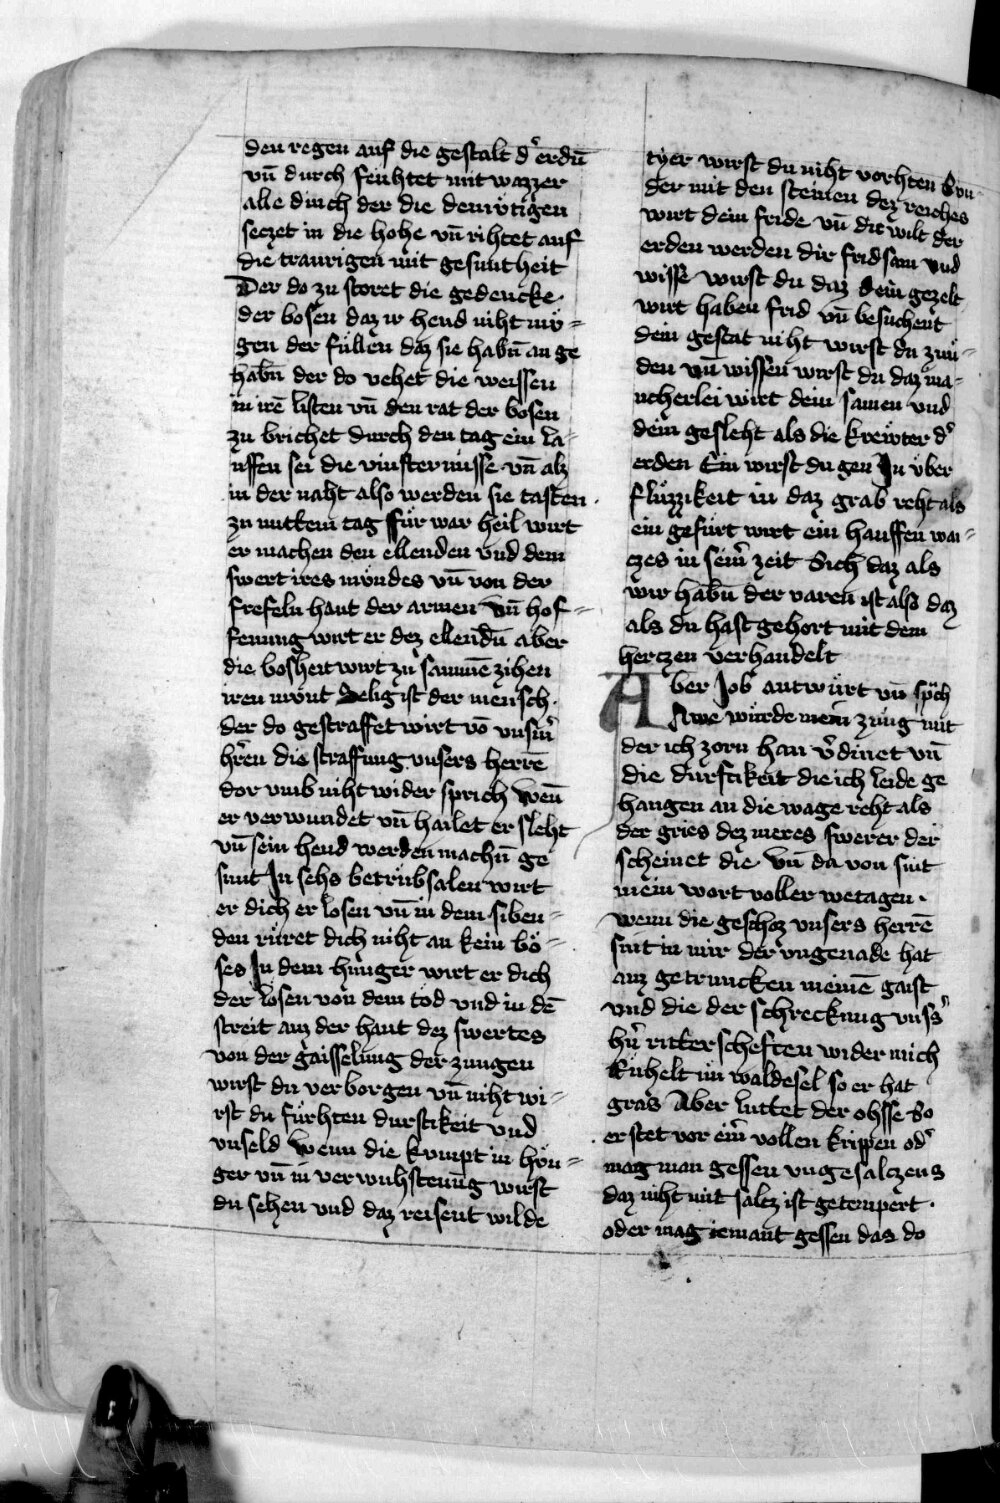 den regen auf die gestalt d' erdū
vn̄ durch feuhtet mit wazzer
alle dinch der die demv̈tigen
seczet in die hohe vn̄ rihtet auf
die traurigen mit gesuntheit
Der do zu storet die gedencke
der bosen daz ir hend niht mü=
gen der füllen daz sie habn̄ an ge
habn̄ der do vehet die weissen
in irē listen vn̄ den rat der bosen
zu brichet durch den tag ein la=
uffen sei die vinsternüsse vn̄ alz
in der naht also werden sie tasten.
zu mittem tag für war heil wirt
er machen den ellenden vnd dem
swert ires mvndes vn̄ von der
frefeln hant der armen vn̄ hof=
fenung wirt er dez ellendū aber
die bosheit wirt zu sammē zihen
iren mvnt Selig ist der mensch.
der do gestraffet wirt vō vnsm̄
hr̄en die straffung vnsers herrē
dor vmb niht wider sprich wen̄
er verwundet vn̄ hailet er sleht
vn̄ sein hend werden machn̄ ge
sunt In sehs betrübsalen wirt
er dich er losen vn̄ in dem siben=
den rüret dich niht an kein bö=
ses In dem hunger wirt er dich
der losen von dem tod vnd in dē
streit auz der hant dez swertes
von der gaisselung der zungen
wirst du verborgen vn̄ niht wi=
rst du fürhten durstikeit vnd
vnseld wenn die kumpt in hün=
ger vn̄ in verwuhstenūg wirst
du sehen vnd daz reisent wilde
tyer wirst du niht vorhten Sun=
der mit den steinen dez reiches
wirt dein fride vn̄ die wilt der
erden werden dir fridsam vnd
wisse wirst du daz dein gezelt
wirt haben frid vn̄ besuchent
dein gestat niht wirst du zvn=
den vn̄ wissen wirst du daz ma=
ncherlei wirt dein samen vnd
dein gesleht als die krewter d'
erden Ein wirst du gen In über
flüzzikeit in daz grab reht als
ein gefürt wirt ein hauffen wai=
czes in seim̄ zeit Sich daz als
wir habn̄ der varen ist also daz
als du hast gehort mit dem
herczen verhandelt
Aber Job antwürt vn̄ sp̄ch
Awe würde mein zung mit
der ich zorn han v'dinet vn̄
die durftikeit die ich leide ge
hangen an die wage reht als
der gries dez meres swerer der
scheinet die vn̄ da von sint
mein wort voller wetagen.
wenn die geschoz vnsers herrē
sint in mir der vngenade hat
auz getruncken meinē gaist
vnd die der schreckung vnss'
hr̄ ritterscheften wider mich
Rühelt im waldesel so er hat
gras Aber luttet der ohsse So
er stet vor eim̄ vollen krippen od'
mag man gessen vngesalczens
daz niht mit salcz ist getempert.
oder mag iemant gessen das do